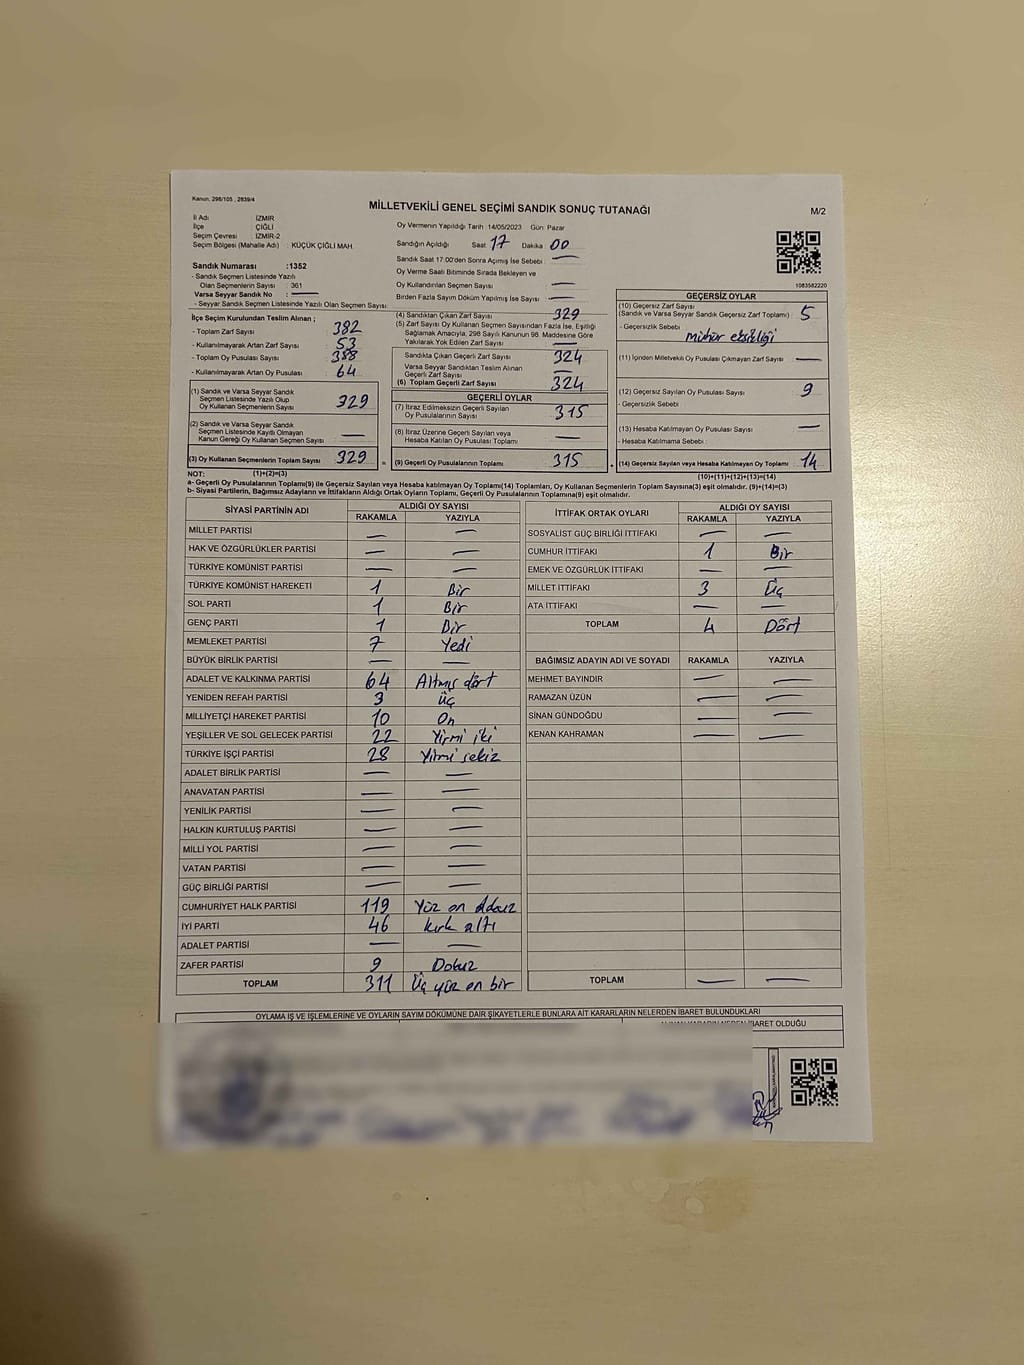 Kanun, 298/105 , 2839/4
MİLLETVEKİLİ GENEL SEÇİMİ SANDIK SONUÇ TUTANAĞI
M/2
İl Adı : İZMİR
İlçe : ÇİĞLİ
Seçim Çevresi : İZMİR-2
Seçim Bölgesi (Mahalle Adı) : KÜÇÜK ÇİĞLİ MAH.
Sandık Numarası :1352
- Sandık Seçmen Listesinde Yazılı
Olan Seçmenlerin Sayısı : 361
Varsa Seyyar Sandık No : —
- Seyyar Sandık Seçmen Listesinde Yazılı Olan Seçmen Sayısı:
Oy Vermenin Yapıldığı Tarih :14/05/2023 Gün: Pazar
Sandığın Açıldığı Saat : 17 Dakika : 00
Sandık Saat 17:00'den Sonra Açımış İse Sebebi : —
Oy Verme Saati Bitiminde Sırada Bekleyen ve
Oy Kullandırılan Seçmen Sayısı : —
Birden Fazla Sayım Döküm Yapılmış İse Sayısı : —
1083582220
İlçe Seçim Kurulundan Teslim Alınan ;
- Toplam Zarf Sayısı : 382
- Kullanılmayarak Artan Zarf Sayısı : 53
- Toplam Oy Pusulası Sayısı : 388
- Kullanılmayarak Artan Oy Pusulası : 64
(1) Sandık ve Varsa Seyyar Sandık
Seçmen Listesinde Yazılı Olup
Oy Kullanan Seçmenlerin Sayısı 329
(2) Sandık ve Varsa Seyyar Sandık
Seçmen Listesinde Kayıtlı Olmayan
Kanun Gereği Oy Kullanan Seçmen Sayısı —
(3) Oy Kullanan Seçmenlerin Toplam Sayısı 329
(1)+(2)=(3)
(4) Sandıktan Çıkan Zarf Sayısı 329
(5) Zarf Sayısı Oy Kullanan Seçmen Sayısından Fazla İse, Eşitliği
Sağlamak Amacıyla, 298 Sayılı Kanunun 98. Maddesine Göre
Yakılarak Yok Edilen Zarf Sayısı : —
Sandıkta Çıkan Geçerli Zarf Sayısı 324
Varsa Seyyar Sandıktan Teslim Alınan
Geçerli Zarf Sayısı —
(6) Toplam Geçerli Zarf Sayısı 324
GEÇERLİ OYLAR
(7) İtiraz Edilmeksizin Geçerli Sayılan
Oy Pusulalarının Sayısı 315
(8) İtiraz Üzerine Geçerli Sayılan veya
Hesaba Katılan Oy Pusulası Toplamı —
= (9) Geçerli Oy Pusulalarının Toplamı 315
GEÇERSİZ OYLAR
(10) Geçersiz Zarf Sayısı
(Sandık ve Varsa Seyyar Sandık Geçersiz Zarf Toplamı) : 5
- Geçersizlik Sebebi :
mühür eksikliği
(11) İçinden Milletvekili Oy Pusulası Çıkmayan Zarf Sayısı : —
(12) Geçersiz Sayılan Oy Pusulası Sayısı : 9
- Geçersizlik Sebebi :
(13) Hesaba Katılmayan Oy Pusulası Sayısı : —
- Hesaba Katılmama Sebebi :
+ (14) Geçersiz Sayılan veya Hesaba Katılmayan Oy Toplamı : 14
(10)+(11)+(12)+(13)=(14)
NOT:
a- Geçerli Oy Pusulalarının Toplamı(9) ile Geçersiz Sayılan veya Hesaba Katılmayan Oy Toplamı(14) Toplamları, Oy Kullanan Seçmenlerin Toplam Sayısına(3) eşit olmalıdır. (9)+(14)=(3)
b- Siyasi Partilerin, Bağımsız Adayların ve İttifakların Aldığı Ortak Oyların Toplamı, Geçerli Oy Pusulalarının Toplamına(9) eşit olmalıdır.
SİYASİ PARTİNİN ADI ALDIĞI OY SAYISI
RAKAMLA YAZIYLA
MİLLET PARTİSİ — —
HAK VE ÖZGÜRLÜKLER PARTİSİ — —
TÜRKİYE KOMÜNİST PARTİSİ — —
TÜRKİYE KOMÜNİST HAREKETİ 1 Bir
SOL PARTİ 1 Bir
GENÇ PARTİ 1 Bir
MEMLEKET PARTİSİ 7 Yedi
BÜYÜK BİRLİK PARTİSİ — —
ADALET VE KALKINMA PARTİSİ 64 Altmış dört
YENİDEN REFAH PARTİSİ 3 Üç
MİLLİYETÇİ HAREKET PARTİSİ 10 On
YEŞİLLER VE SOL GELECEK PARTİSİ 22 Yirmi iki
TÜRKİYE İŞÇİ PARTİSİ 28 Yirmi sekiz
ADALET BİRLİK PARTİSİ — —
ANAVATAN PARTİSİ — —
YENİLİK PARTİSİ — —
HALKIN KURTULUŞ PARTİSİ — —
MİLLİ YOL PARTİSİ — —
VATAN PARTİSİ — —
GÜÇ BİRLİĞİ PARTİSİ — —
CUMHURİYET HALK PARTİSİ 119 Yüz on dokuz
İYİ PARTİ 46 kırk altı
ADALET PARTİSİ — —
ZAFER PARTİSİ 9 Dokuz
TOPLAM 311 Üç yüz on bir
İTTİFAK ORTAK OYLARI ALDIĞI OY SAYISI
RAKAMLA YAZIYLA
SOSYALİST GÜÇ BİRLİĞİ İTTİFAKI — —
CUMHUR İTTİFAKI 1 Bir
EMEK VE ÖZGÜRLÜK İTTİFAKI — —
MİLLET İTTİFAKI 3 Üç
ATA İTTİFAKI — —
TOPLAM 4 Dört
BAĞIMSIZ ADAYIN ADI VE SOYADI RAKAMLA YAZIYLA
MEHMET BAYINDIR — —
RAMAZAN ÜZÜN — —
SİNAN GÜNDOĞDU — —
KENAN KAHRAMAN — —
TOPLAM — —
OYLAMA İŞ VE İŞLEMLERİNE VE OYLARIN SAYIM DÖKÜMÜNE DAİR ŞİKAYETLERLE BUNLARA AİT KARARLARIN NELERDEN İBARET BULUNDUKLARI
İBARET OLDUĞU